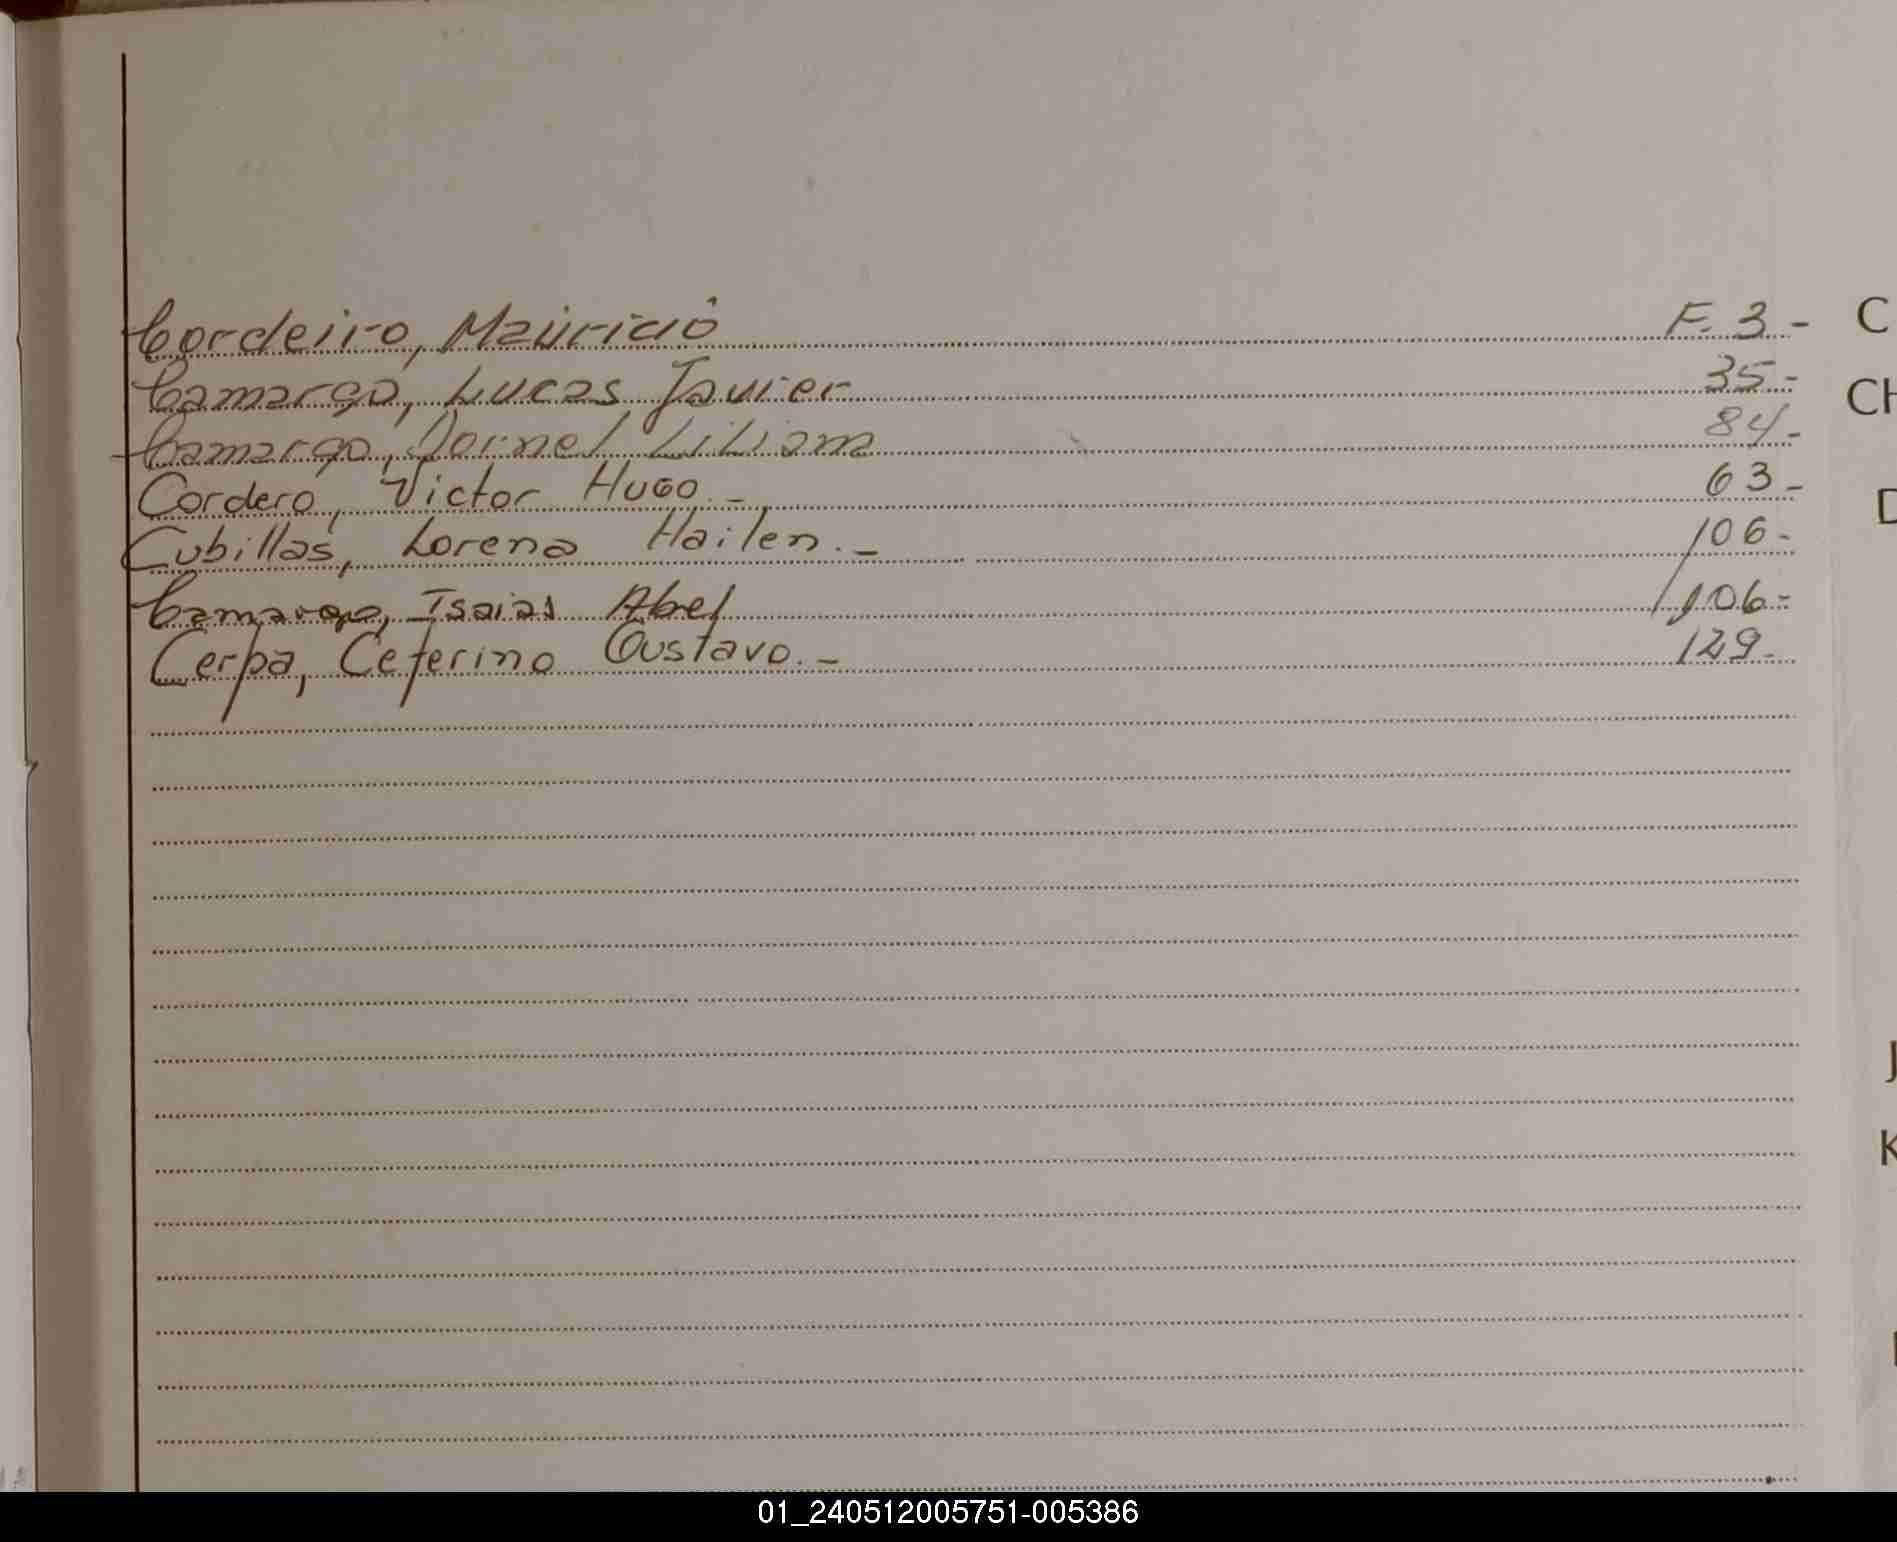 Cordeiro, Mauricio F. 3 -
Camargo, Lucas Javier 35 -
Camargo, Dornel Liliana 84 -
Cordero, Victor Hugo. - 63 -
Cubillas, Lorena Hailen. - 106 -
Camargo, Isaias Abel 106 -
Cerpa, Ceferino Gustavo. - 129 -
C
CH
D
J
K
01_240512005751-005386